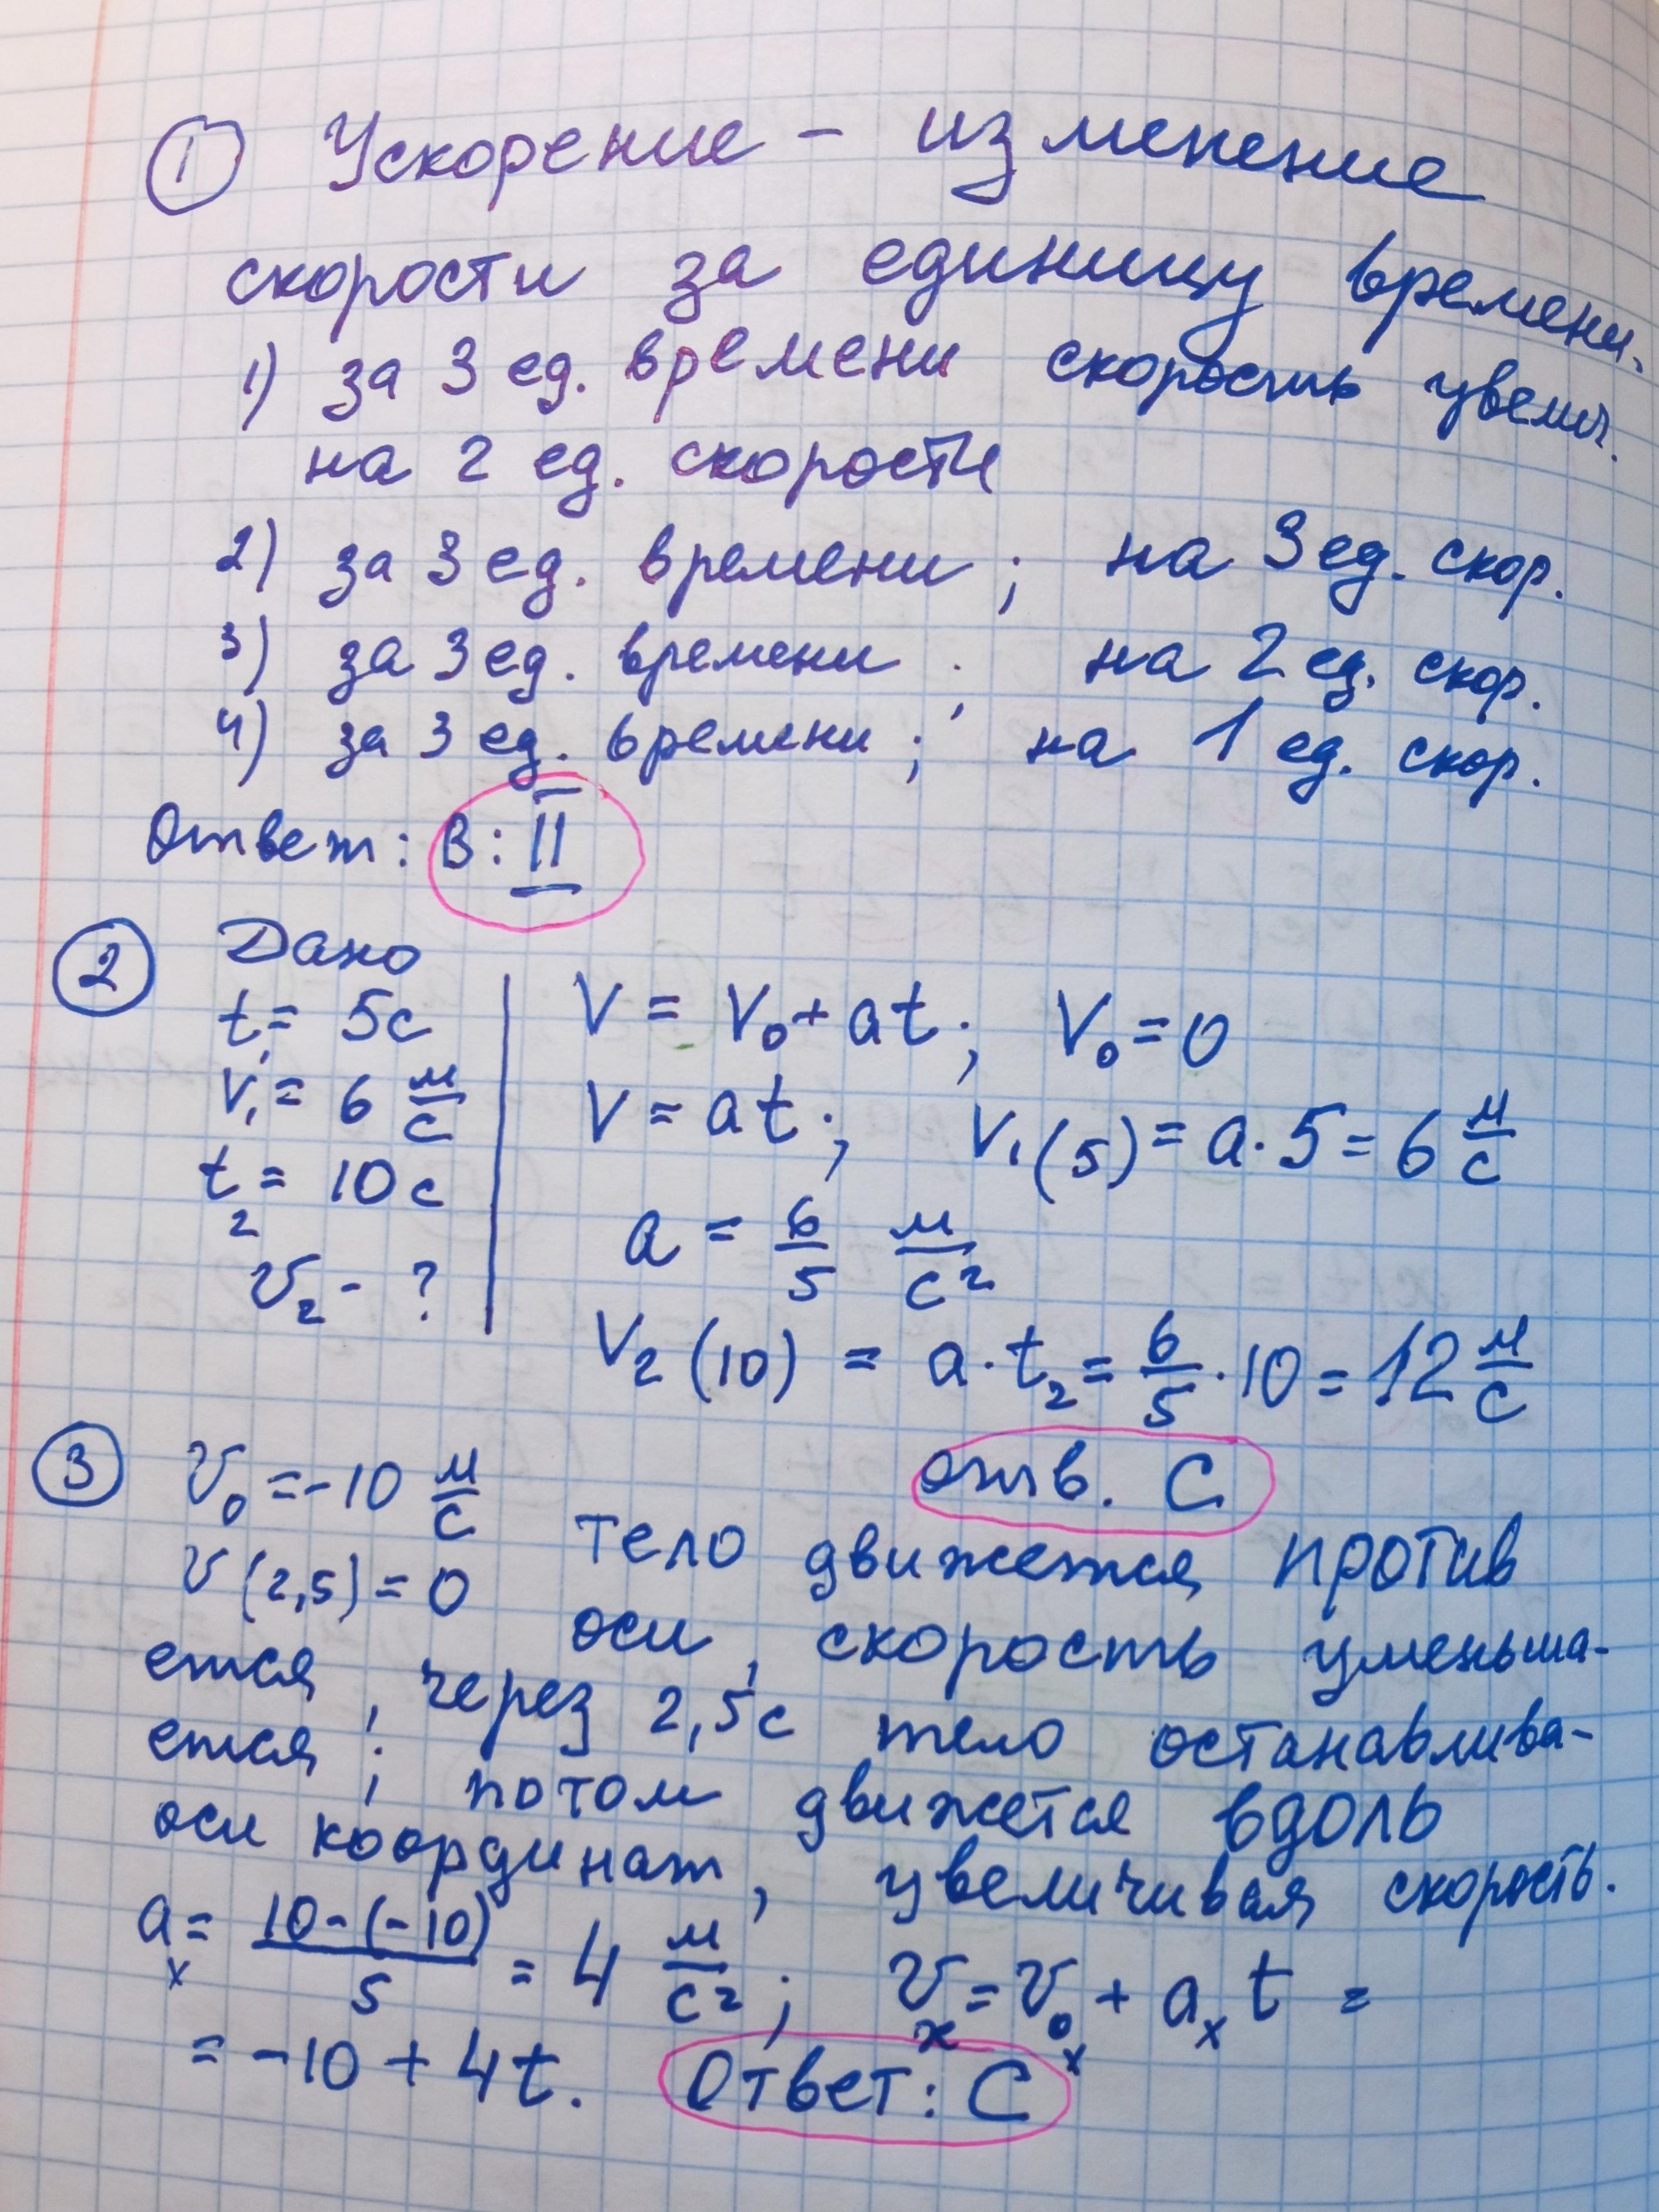 ① Ускорение - изменение
скорости за единицу времени.
1) за 3 ед. времени скорость увелич.
на 2 ед. скорости
2) за 3 ед. времени ; на 3 ед. скор.
3) за 3 ед. времени ; на 2 ед. скор.
4) за 3 ед. времени ; на 1 ед. скор.
Ответ: В: II
② Дано
t₁ = 5с
V₁ = 6 м/с
t₂ = 10с
v₂ - ?
V = V₀ + at ; V₀ = 0
V = at ; V₁(5) = a · 5 = 6 м/с
a = 6/5 м/с²
V₂(10) = a · t₂ = 6/5 · 10 = 12 м/с
отв. С
③ v₀ = -10 м/с
v(2,5) = 0
тело движется против
оси, скорость уменьша-
ется, через 2,5с тело останавлива-
ется ; потом движется вдоль
оси координат, увеличивая скорость.
aₓ = (10-(-10))/5 = 4 м/с² ; vₓ = v₀ₓ + aₓt =
= -10 + 4t. Ответ: С